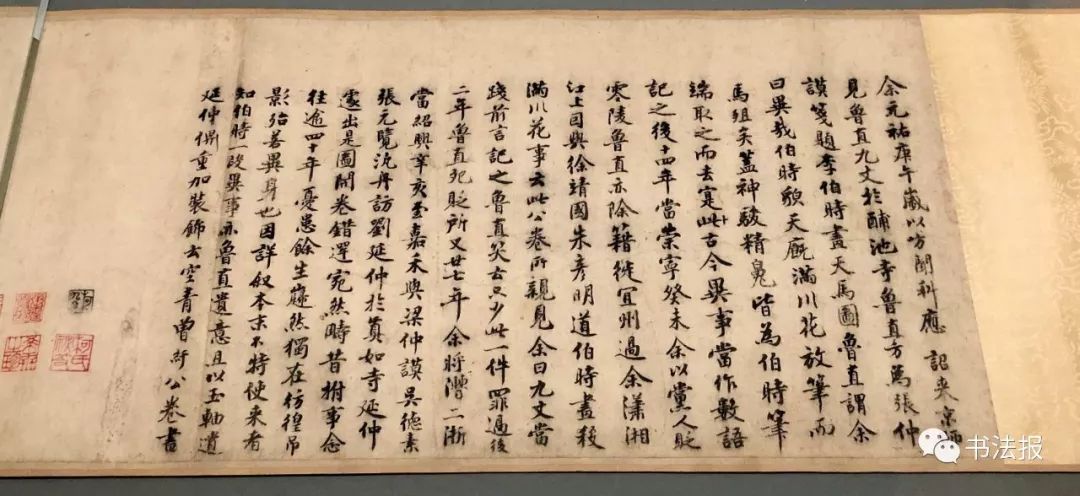 余元祐庚午歲以方聞科應 詔来京師
見魯直九丈於酺池寺魯直方為張仲
謨箋題李伯時畫天馬圖魯直謂余
曰異哉伯時貌天廄滿川花放筆而
馬殂矣蓋神駿精魄皆為伯時筆
端取之而去寔古今異事當作數語
記之後十四年當崇寧癸未余以黨人貶
零陵魯直亦除籍徙宜州過余瀟湘
江上因與徐靖國朱彥明道伯時畫殺
滿川花事云此公卷所親見余曰九丈當
踐前言記之魯直笑云只少此一件罪過後
二年魯直死貶所又廿七年余將漕二浙
當紹興辛亥至嘉禾與梁仲謨吳德素
張元覽汎舟訪劉延仲於真如寺延仲
遽出是圖開卷錯愕宛然疇昔拊事念
往逾四十年憂患餘生巋然獨在彷徨弔
影殆若異身也因詳叙本末不特使来者
知伯時一段異事亦魯直遺意且以玉軸遺
延仲俾重加裝飾云空青曾紆公卷書
书法报